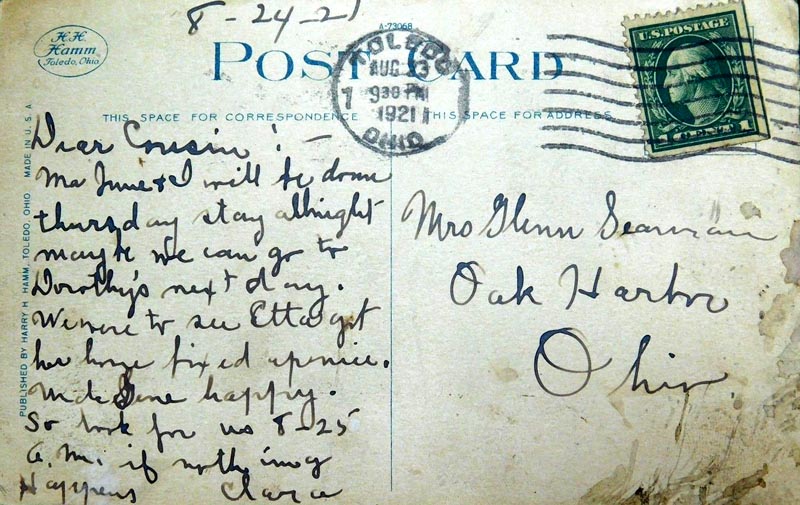 8-24-21
A-73068
H.H. Hamm
Toledo, Ohio
POST CARD
TOLEDO
AUG 23
930 PM
1921
OHIO
1
U.S. POSTAGE
1 CENT 1
THIS SPACE FOR CORRESPONDENCE
THIS SPACE FOR ADDRESS
PUBLISHED BY HARRY H. HAMM, TOLEDO, OHIO MADE IN U.S.A
Dear Cousin:-
Ma June & I will be down
thursday stay allnight
maybe we can go to
Dorothy's next day.
We were to see Etta got
her home fixed up nice.
happy.
So look for us 8-25
a.m. if nothing
Happens Clara
Mrs Glenn Seaman
Oak Harbor
Ohio.